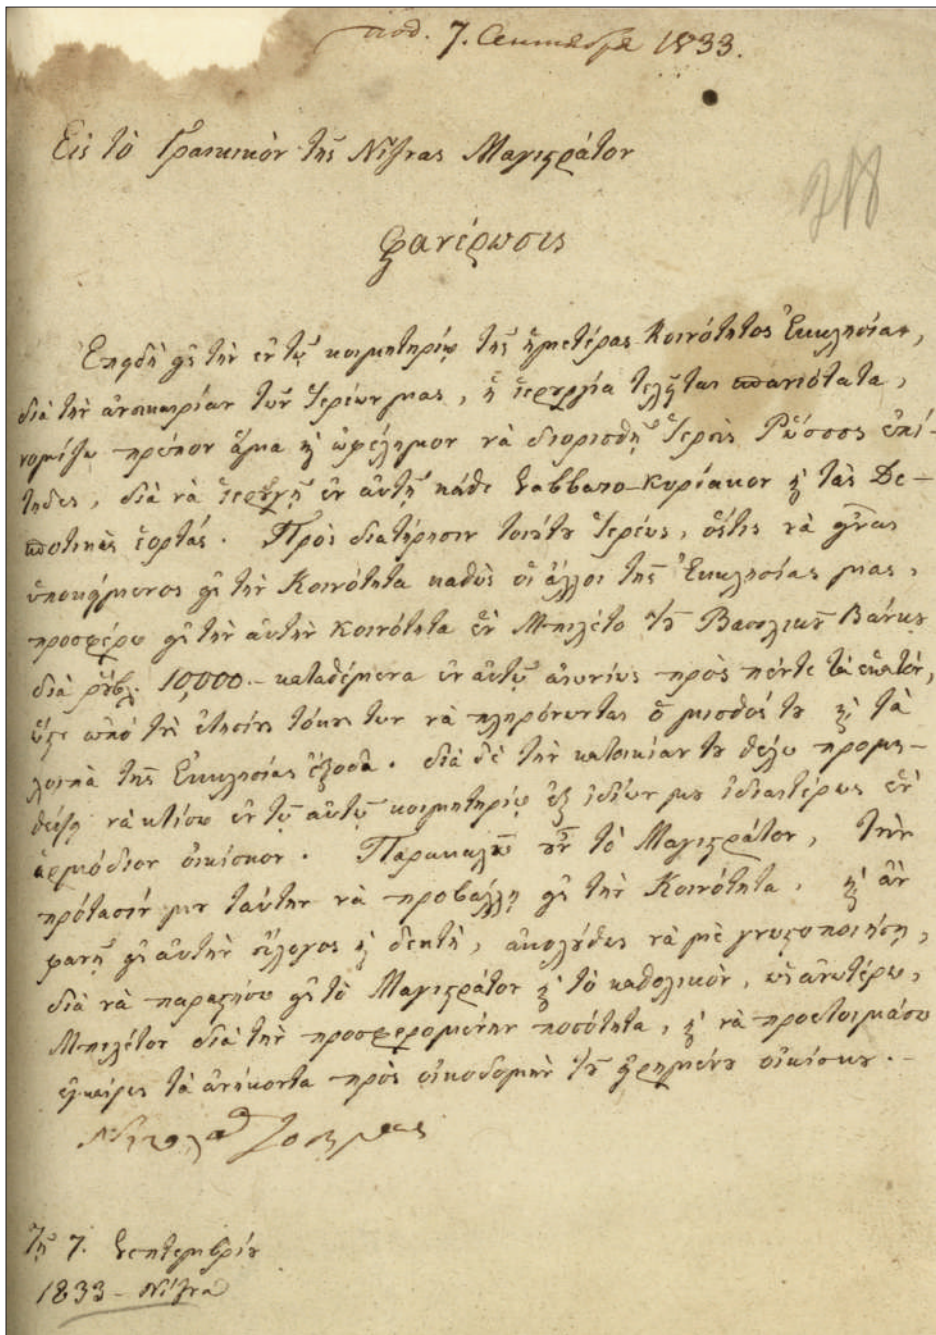 под. 7. Сентября 1833.
Εἰς τὸ Γραικικὸν τῆς Νίζνας Μαγιστράτον
Φανέρωσις
Ἐπειδὴ εἰς τὴν ἐν τῷ κοιμητηρίῳ τῆς ἡμετέρας Κοινότητος Ἐκκλησίαν,
διὰ τὴν ἀνευκαιρίαν τῶν Ἱερέων μας, ἡ ἱερουργία τελεῖται σπανιότατα,
νομίζω πρέπον ἅμα καὶ ὠφέλημον νὰ διορισθῇ Ἱερεὺς Ῥῶσσος ἐπί-
τηδες, διὰ νὰ ἱερουργῇ ἐν αὐτῇ κάθε Σαββατο-κυρίακον καὶ τὰς Δε-
σποτικὰς ἑορτάς. Πρὸς διατήρησιν τοιούτου Ἱερέως, ὅστις νὰ ᾖναι
ὑποκείμενος εἰς τὴν Κοινότητα καθὼς οἱ ἄλλοι τῆς Ἐκκλησίας μας,
προσφέρω εἰς τὴν αὐτὴν Κοινότητα ἓν Μπιλέτο τοῦ Βασιλικοῦ Βάνκου
διὰ ῥουβλ. 10,000.- καταθέμενα ἐν αὐτῷ αἰωνίως πρὸς πέντε τὰ ἑκατόν,
ὥστε ἀπὸ τοὺς ἐτησίους τόκους των νὰ πληρόνωνται ὁ μισθός του καὶ τὰ
λοιπὰ τῆς Ἐκκλησίας ἔξοδα. διὰ δὲ τὴν κατοικίαν του θέλω προμη-
θεύσῃ νὰ κτίσω ἐν τῷ αὐτῷ κοιμητηρίῳ ἐξ ἰδίων μου ἰδιαιτέρως ἓν
ἁρμόδιον οἰκίσκον. Παρακαλῶ οὖν τὸ Μαγιστράτον, τὴν
πρότασίν μου ταύτην νὰ προβάλλῃ εἰς τὴν Κοινότητα, καὶ ἂν
φανῇ εἰς αὐτὴν εὔλογος καὶ δεκτή, ἀκολούθως νὰ μὲ γνωστοποιήσῃ,
διὰ νὰ παραστήσω εἰς τὸ Μαγιστράτον καὶ τὸ καθολικὸν, ὡς ἀνωτέρω,
Μπιλέτον διὰ τὴν προσφερομένην ποσότητα, καὶ νὰ προετοιμάσω
ἐγκαίρως τὰ ἀνήκοντα πρὸς οἰκοδομὴν τοῦ εἰρημένου οἰκίσκου.-
Τῇ 7. Σεπτεμβρίου
1833 - Νίζνα